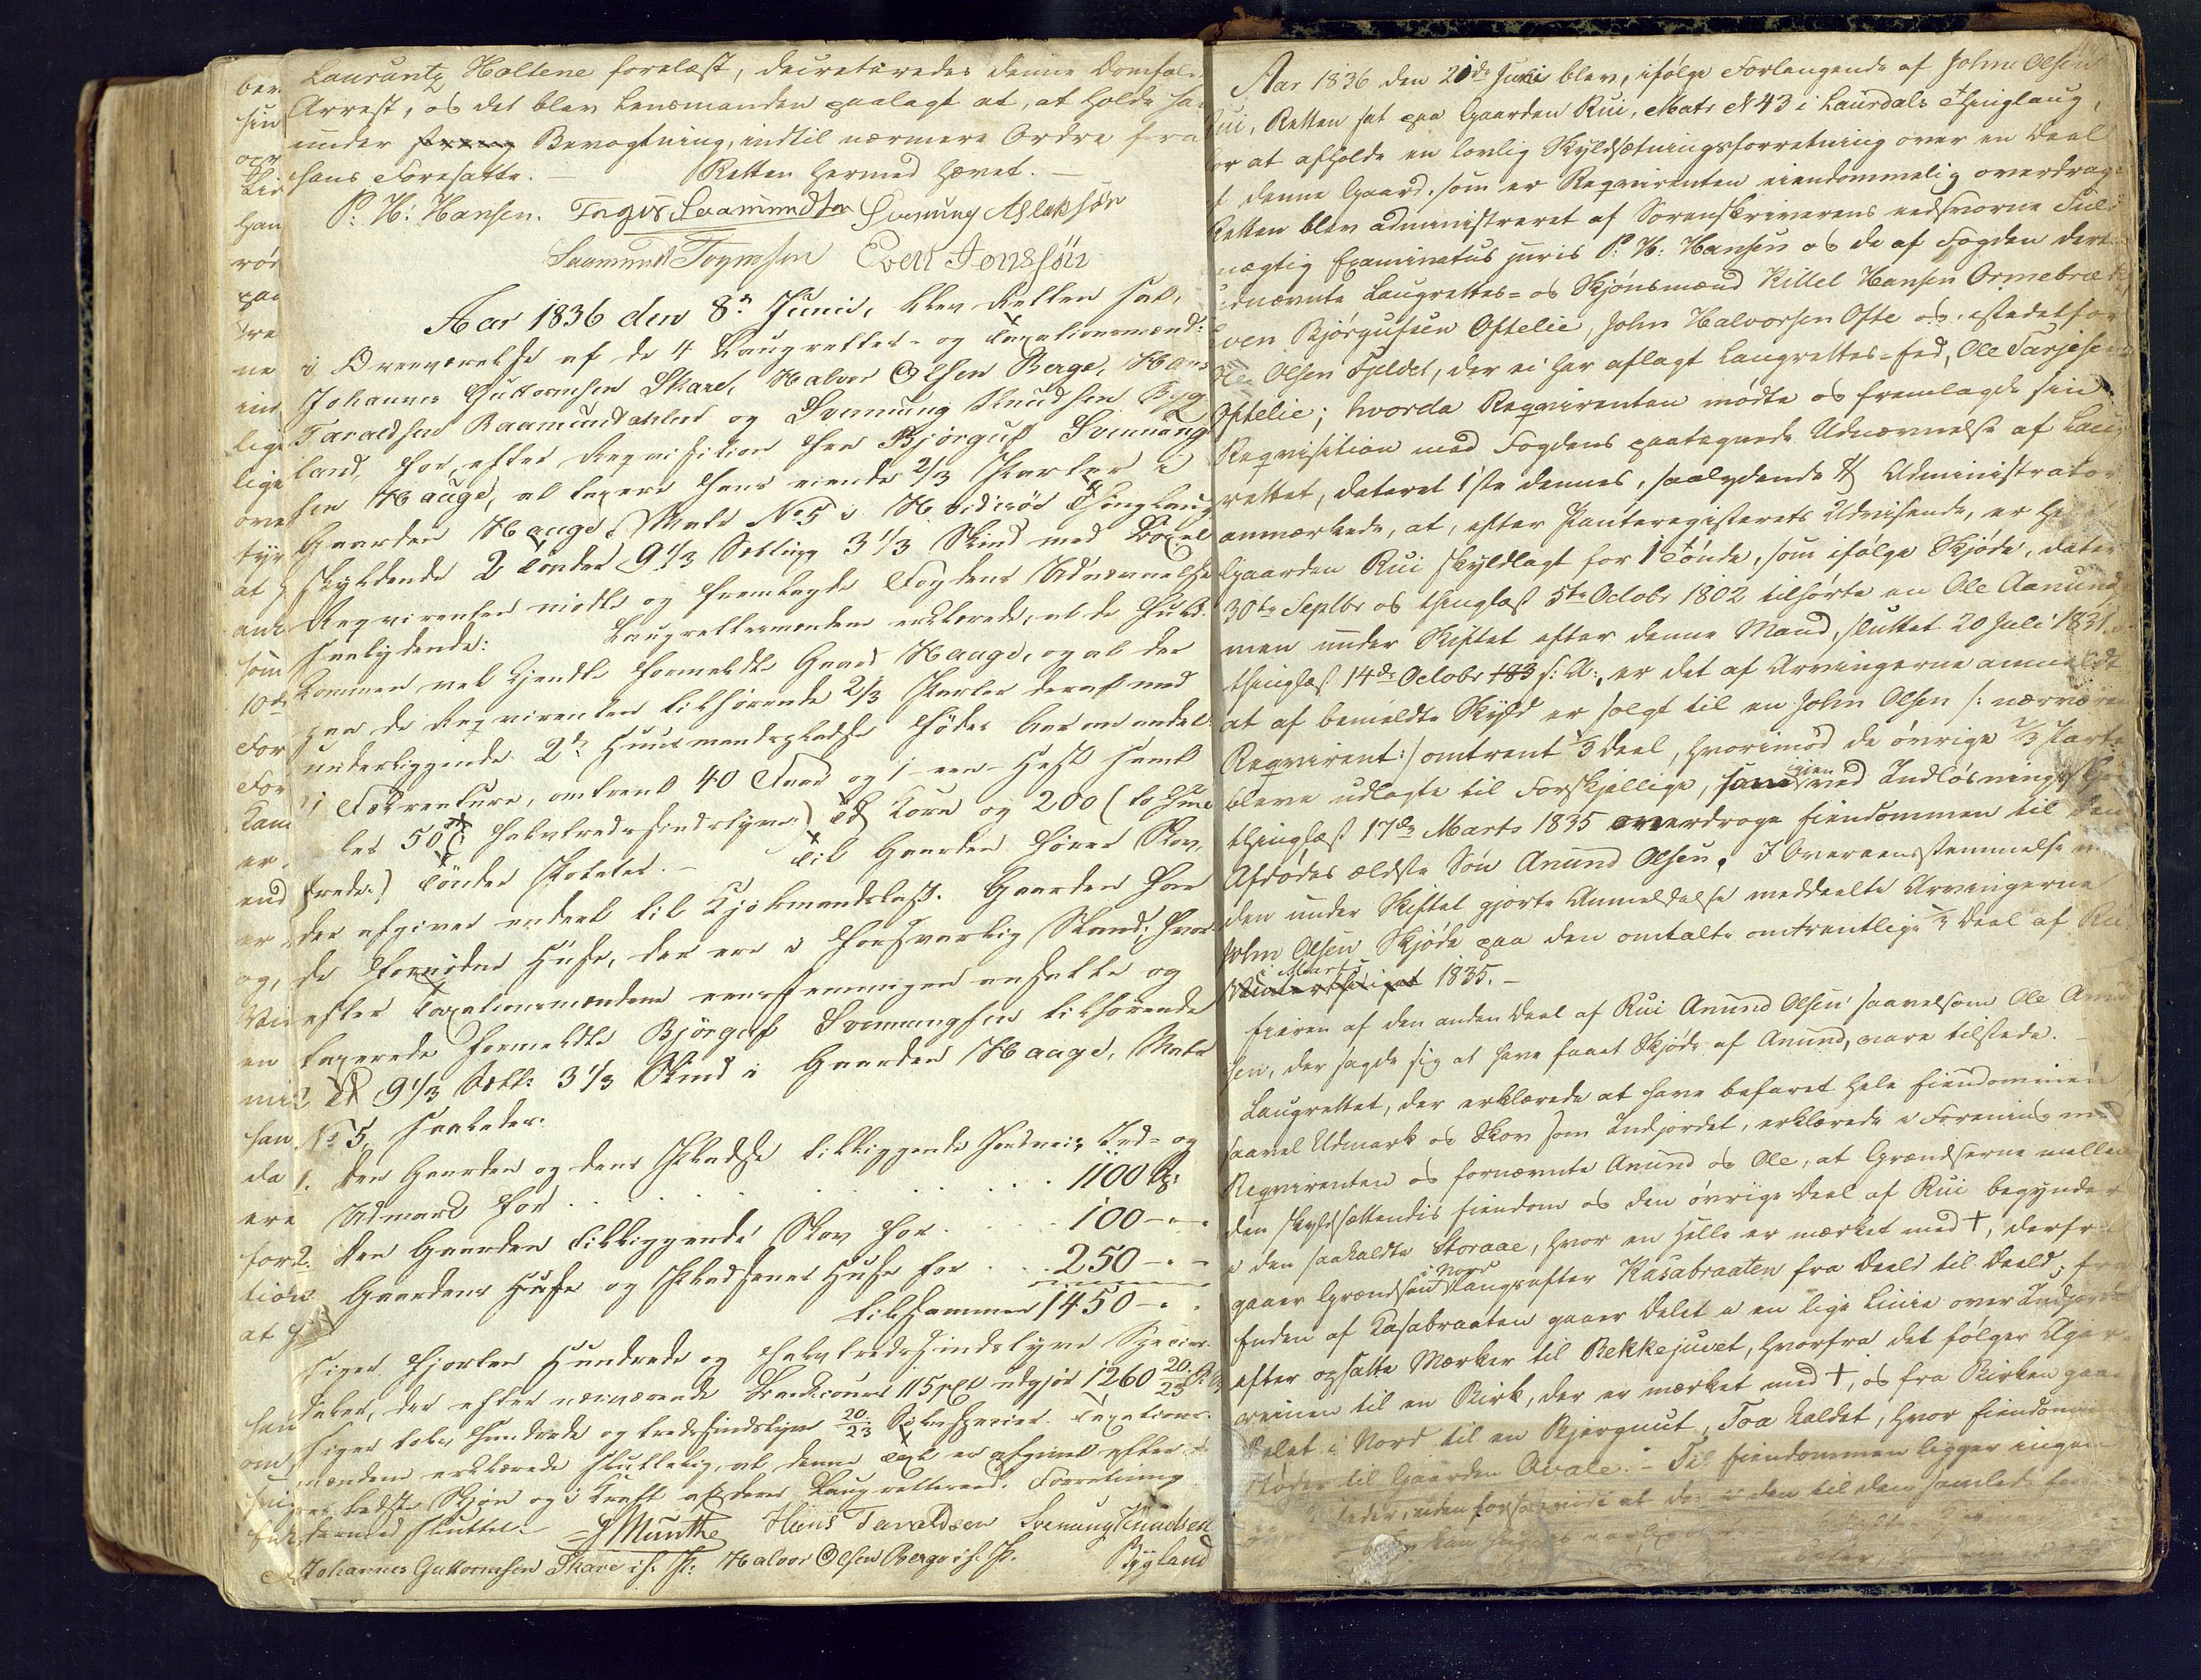 Laurantz Holtene forelæst, decreteredes denne Domfæl-
Arrest, og det blev Lensmanden paalagt at, at holde ha
under streng Bevogtning, indtil nærmere Ordre fra
hans Foresatte. — Retten hermed hævet. —
P: H: Hansen. Torgus Saamundsøn Svenung Aslaksøn
Saamund Torgersen Even Jonssøn
Aar 1836 den 8de Junii, blev Retten sat,
i Overværelse af de 4 Laugrettes- og Taxationsmænd:
Johannes Guttormsen Skare, Halvor Olsen Berge, Hans
Taraldsen Raamunddahlen og Svenung Knudsen Byg
land, for, efter Requisition fra Bjørguf Svennung
sen Hauge, at taxere hans eiende 2/3 Parter i
Gaarden Hauge, Matr No 5 i Hvidesøe Thinglaug
skyldende 2 Tønder 9 1/3 Sætting 3 1/3 Skind med Bøxel
Requirenten mødte og fremlagde Fogdens Udnævnelse
saalydende: Laugrettesmændene erklærede, at de fuld-
kommen vel kjendte formeldte Gaard Hauge, og at der
paa de Requirenten tilhørende 2/3 Parter deraf med
underliggende 2de Huusmandspladse fødes Aar om andet
Fækreature, omtrent 40 Faar og 1 – een – Hest samt
les 50 (halvtredsindstyve) Td Korn og 200 (to Hun-
drede) Tønder Poteter. — Til Gaarden hører Skov,
der afgiver endeel til Kjøbmandslast. Gaarden har
de fornødne Huse, der ere i forsvarlig Stand; hvor-
efter Taxationsmændene eensstemmigen ansatte og
taxerede formeldte Bjørguf Svennungsen tilhørende
2 Td 9 1/3 Sætt: 3 1/3 Skind i Gaarden Hauge, Matr
No 5, saaledes:
1. Den Gaarden og dens Pladse tilliggende Jordvei, Ind- og
Udmark for . . . . . . . . 1100 Sp:
2. Den Gaarden tilliggende Skov for . . . . 100 – „ –
Gaardens Huse og Pladsenes Huse for . . . 250 – „ –
tilsammen 1450 – „ –
siger fjorten Hundrede og halvtredsindstyve Species
daler, der efter nærværende Bankcours 115 pCt udgjør 1260 20/23
siger tolv Hundrede og tredsindstyve 20/23 Sølvspecier. Taxations-
mændene erklærede sluttelig, at denne Taxt er afgivet efter
res bedste Skjøn og i Kraft af deres Laugrettesed. Forretning
dermed sluttet. — J Munthe Hans Taraldsen Svenung Knudsen
Johannes Guttormsen Skare i. f. P: Halvor Olsen Berge i. f. P. Bygland
Aar 1836 den 21de Juni blev, ifølge Forlangende af John Olsen
Rui, Retten sat paa Gaarden Rui, Matr N 43 i Laurdals Thinglaug,
for at afholde en lovlig Skyldsætningsforretning over en Deel
af denne Gaard, som er Reqvirenten eiendommelig overdrage
Retten blev administreret af Sorenskriverens eedsvorne Ful
mægtig Examinatus juris P: H: Hansen og de af Fogden dert
udnævnte Laugrettes- og Skjønsmænd Killel Hansen Ormebræk,
Even Bjørgufsen Oftelie, John Halvorsen Ofte og, istedetfor
Ole Olsen Fjeldet, der ei har aflagt Laugrettes-Eed, Ole Tarjesen
Oftelie; hvorda Reqvirenten mødte og fremlagde sin
Reqvisition med Fogdens paategnede Udnævnelse af Laug
rettet, dateret 1ste dennes, saalydende Administrator
anmærkede, at, efter Panteregisterets Udvisende, er He
Gaarden Rui skyldlagt for 1 Tønde, som ifølge Skjøde, dater
30te Septbr og thinglæst 5te Octobr 1802 tilhørte en Ole Aanund
men under Skiftet efter denne Mand, sluttet 20 Juli 1831.
thinglæst 14de Octobr 183 s: A:, er det af Arvingerne anmeldt
at af bemeldte Skyld er solgt til en John Olsen /: nærvære
Reqvirent:/ omtrent 1/3 Deel, hvorimod de øvrige 2/3 Parte
bleve udlagte til Forskjellige, som igien ved Indløsnings Skjø
thinglæst 17de Marts 1835 overdroge Eiendommen til den
Afdødes ældste Søn Anund Olsen. I Overeensstemmelse m
den under Skiftet gjorte Anmeldelse meddeelte Arvingerne
John Olsen Skjøde paa den omtalte omtrentlige 1/3 Deel af Ru
i Marts 1835. —
Eieren af den anden Deel af Rui Anund Olsen saavelsom Ole Anun
sen, der sagde sig at have faaet Skjøde af Anund, vare tilstede.
Laugrettet, der erklærede at have befaret hele Eiendommen
saavel Udmark og Skov som Indjordet, erklærede i Forening med
Reqvirenten og fornævnte Anund og Ole, at Grændserne mellem
den skyldsættendes Eiendom og den øvrige Deel af Rui begynder
i den saakaldte Storaae, hvor en Helle er mærket med +, derfra
gaaer Grændsen i Nord langsefter Kasabraaten fra Deeld til Deeld; fra
Enden af Kasabraaten gaaer Delet i en lige Linie over Indjorde
efter opsatte Mærker til Bekkejuvet, hvorfra det følger Ager
reinen til en Birk, der er mærket med +, og fra Birken gaae
Delet i Nord til en Bjergnut, Toa kaldet, hvor Eiendomm
støder til Gaarden Avale. — Til Eiendommen ligger ingen